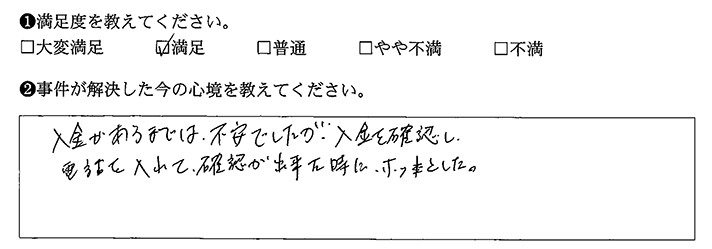 ❶満足度を教えてください。
□大変満足 ☑満足 □普通 □やや不満 □不満
❷事件が解決した今の心境を教えてください。
入金があるまでは、不安でしたので、入金を確認し、
電話を入れて、確認が出来た時に、ホッとした。